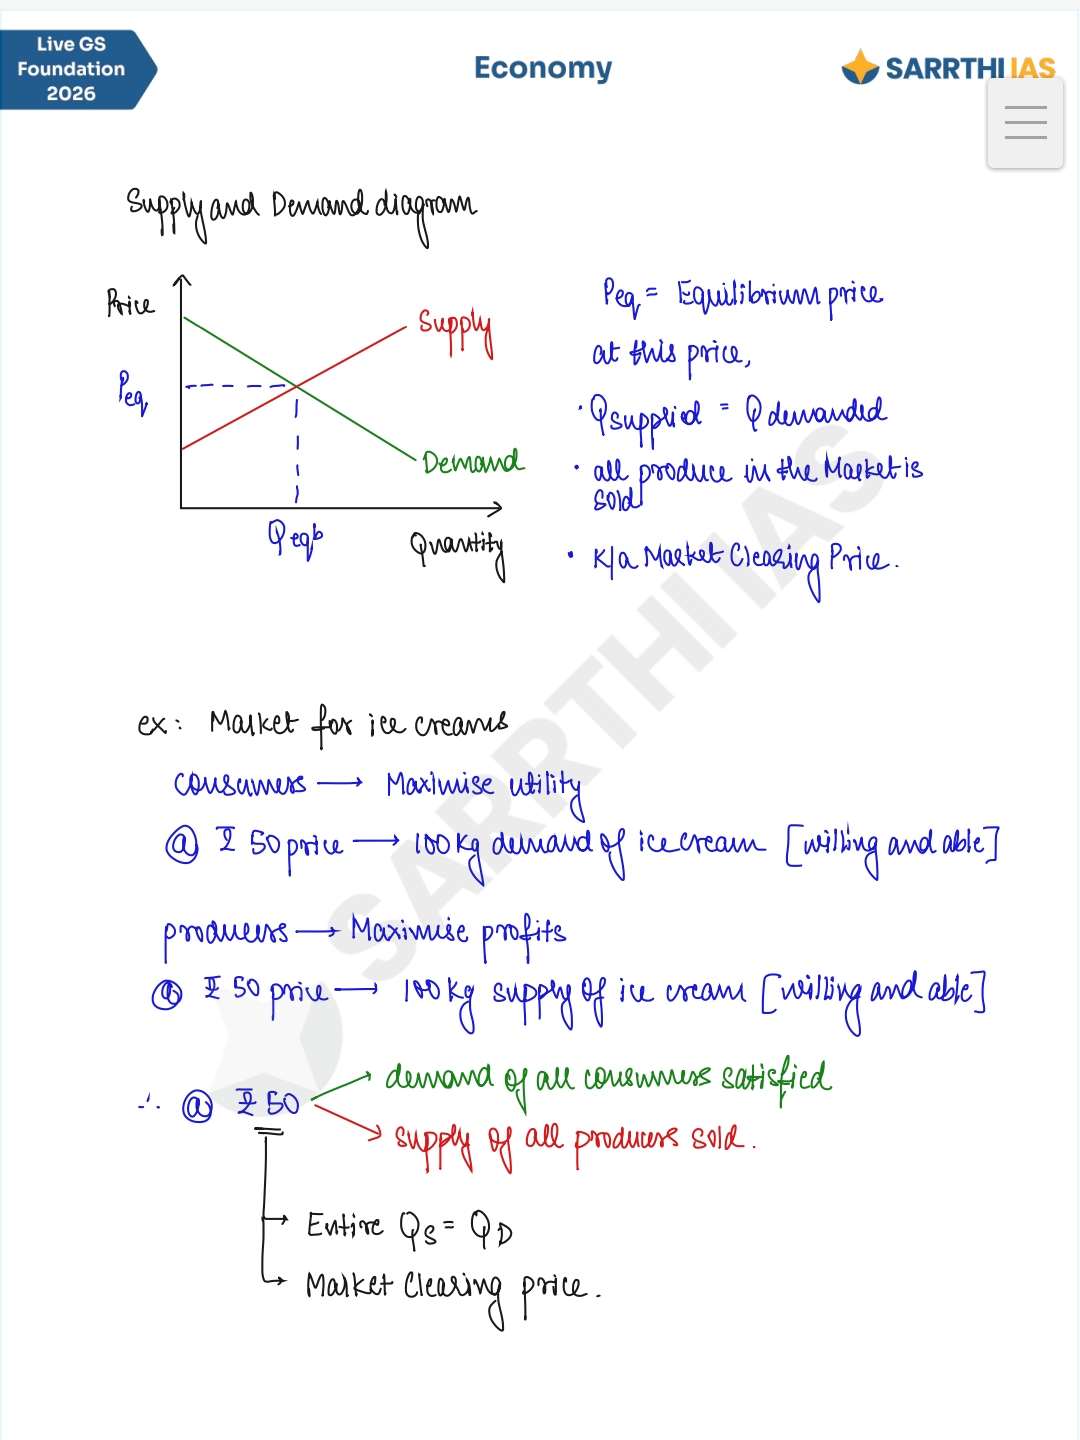 Live GS
Foundation
2026
Economy
SARRTHI IAS
Supply and Demand diagram
Price
Supply
Peq
Demand
Qeqb
Quantity
Peq = Equilibrium price
at this price,
· Qsupplied = Qdemanded
· all produce in the Market is
sold
· K/a Market Clearing Price.
ex: Market for ice creams
consumers → Maximise utility
@ ₹ 50 price → 100 kg demand of ice cream [willing and able]
producers → Maximise profits
@ ₹ 50 price → 100 kg supply of ice cream [willing and able]
demand of all consumers satisfied
∴ @ ₹ 50
supply of all producers sold.
Entire QS = QD
Market Clearing price.
SARRTHI IAS